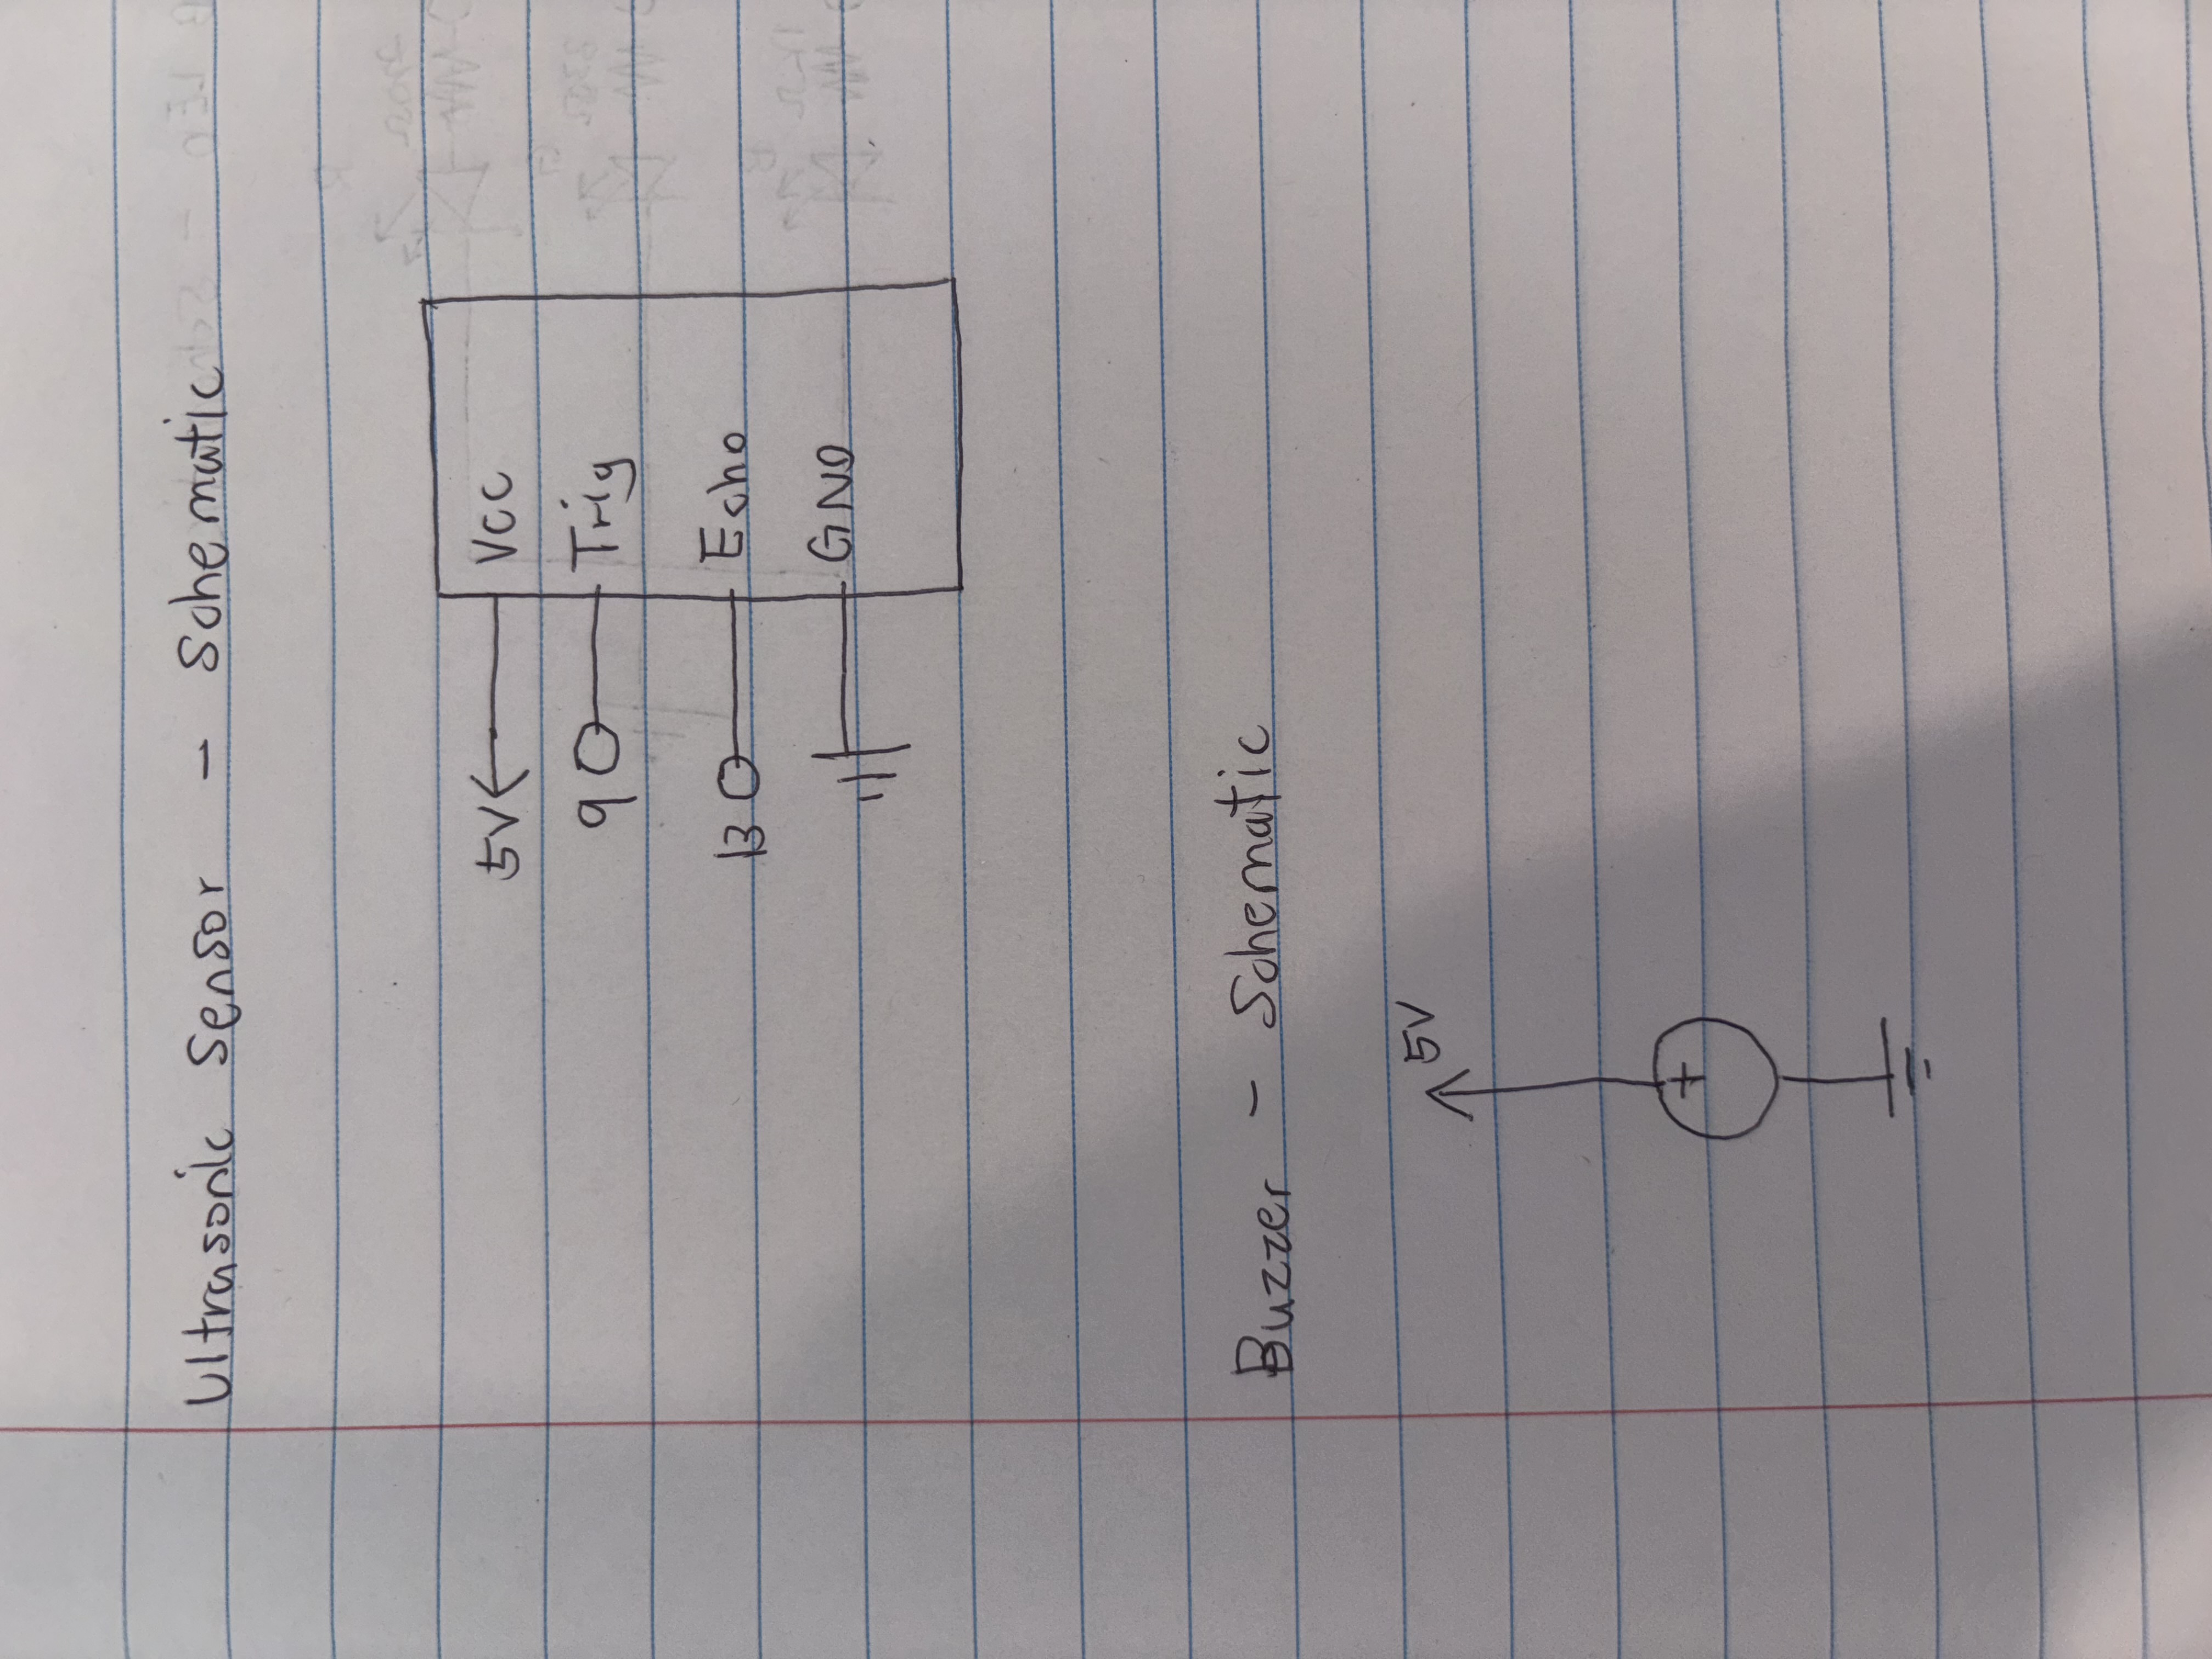 Ultrasonic Sensor - Schematic
5V VCC
9 Trig
13 Echo
GND
Buzzer - Schematic
5V
+